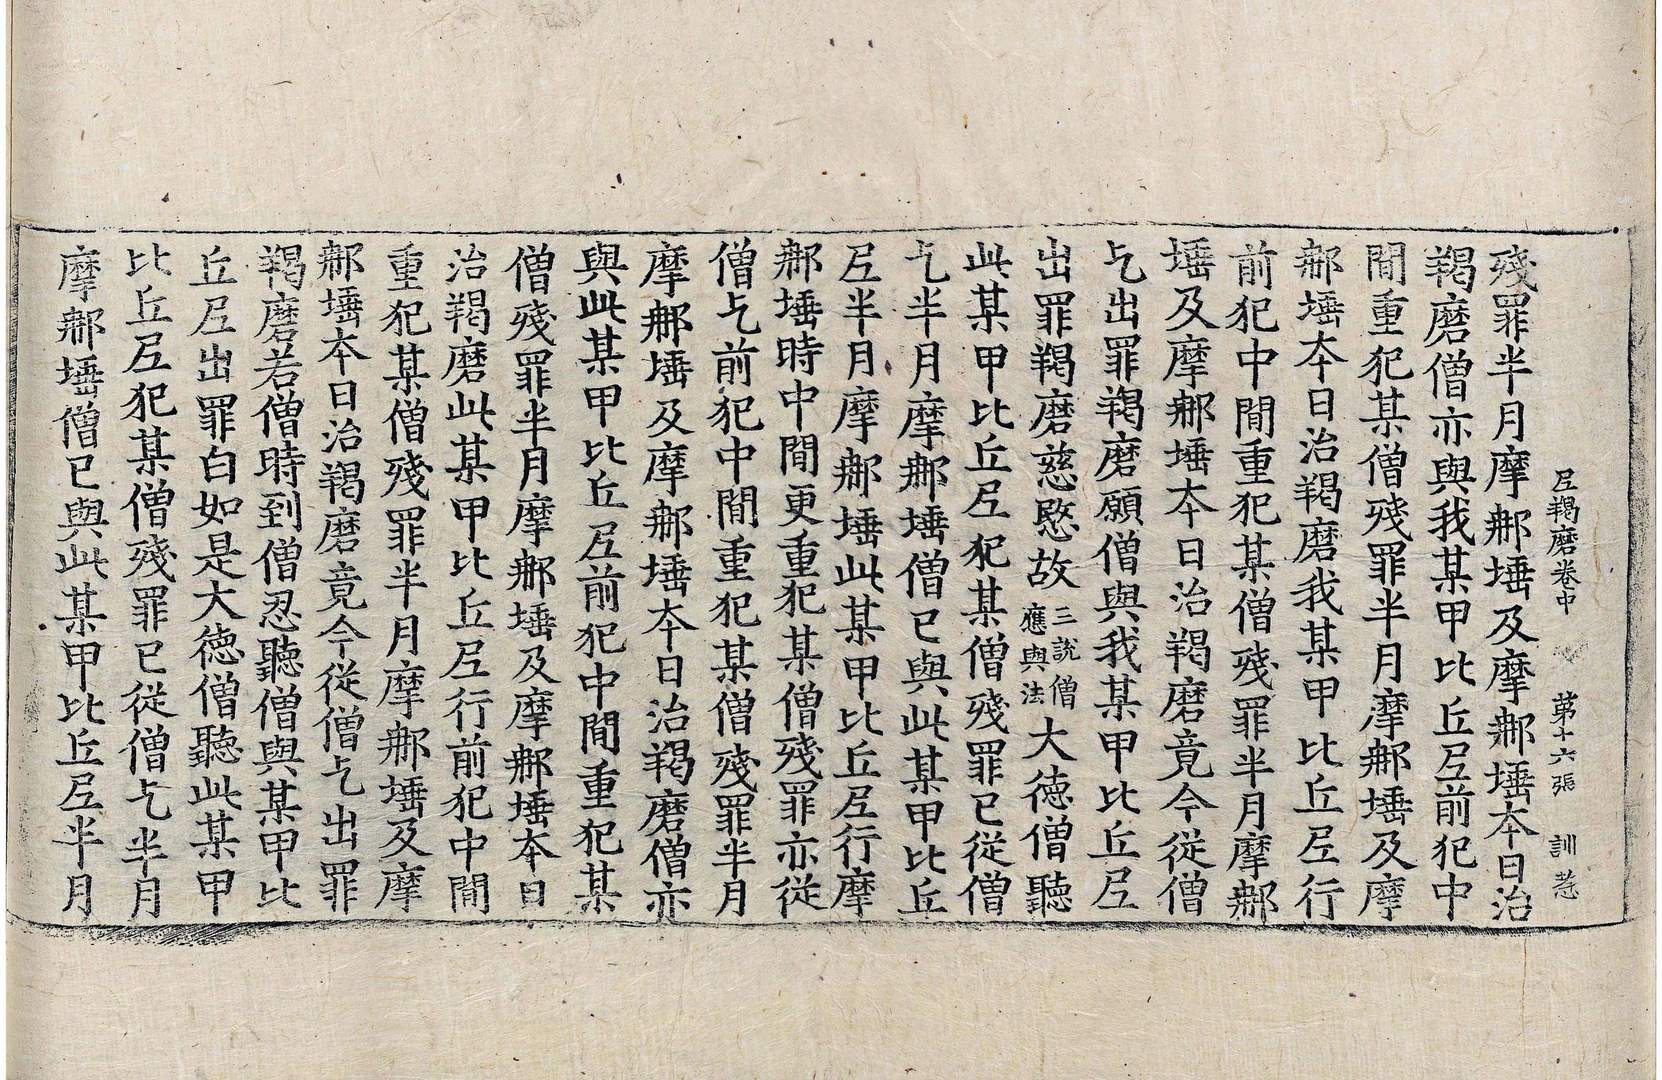 尼羯磨卷中 第十六張 訓
殘罪半月摩那埵及摩那埵本日治
羯磨僧亦與我某甲比丘尼前犯中
間重犯某僧殘罪半月摩那埵及摩
那埵本日治羯磨我某甲比丘尼行
前犯中間重犯某僧殘罪半月摩那
埵及摩那埵本日治羯磨竟今從僧
乞出罪羯磨願僧與我某甲比丘尼
出罪羯磨慈愍故三說僧應與法大德僧聽
此某甲比丘尼犯某僧殘罪已從僧
乞半月摩那埵僧已與此某甲比丘
尼半月摩那埵此某甲比丘尼行摩
那埵時中間更重犯某僧殘罪亦從
僧乞前犯中間重犯某僧殘罪半月
摩那埵及摩那埵本日治羯磨僧亦
與此某甲比丘尼前犯中間重犯某
僧殘罪半月摩那埵及摩那埵本日
治羯磨此某甲比丘尼行前犯中間
重犯某僧殘罪半月摩那埵及摩
那埵本日治羯磨竟今從僧乞出罪
羯磨若僧時到僧忍聽僧與某甲比
丘尼出罪白如是大德僧聽此某甲
比丘尼犯某僧殘罪已從僧乞半月
摩那埵僧已與此某甲比丘尼半月